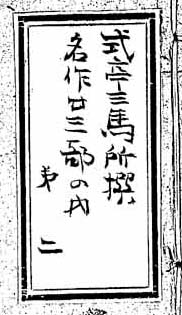 式亭三馬所撰
名作廿三部の内
第二